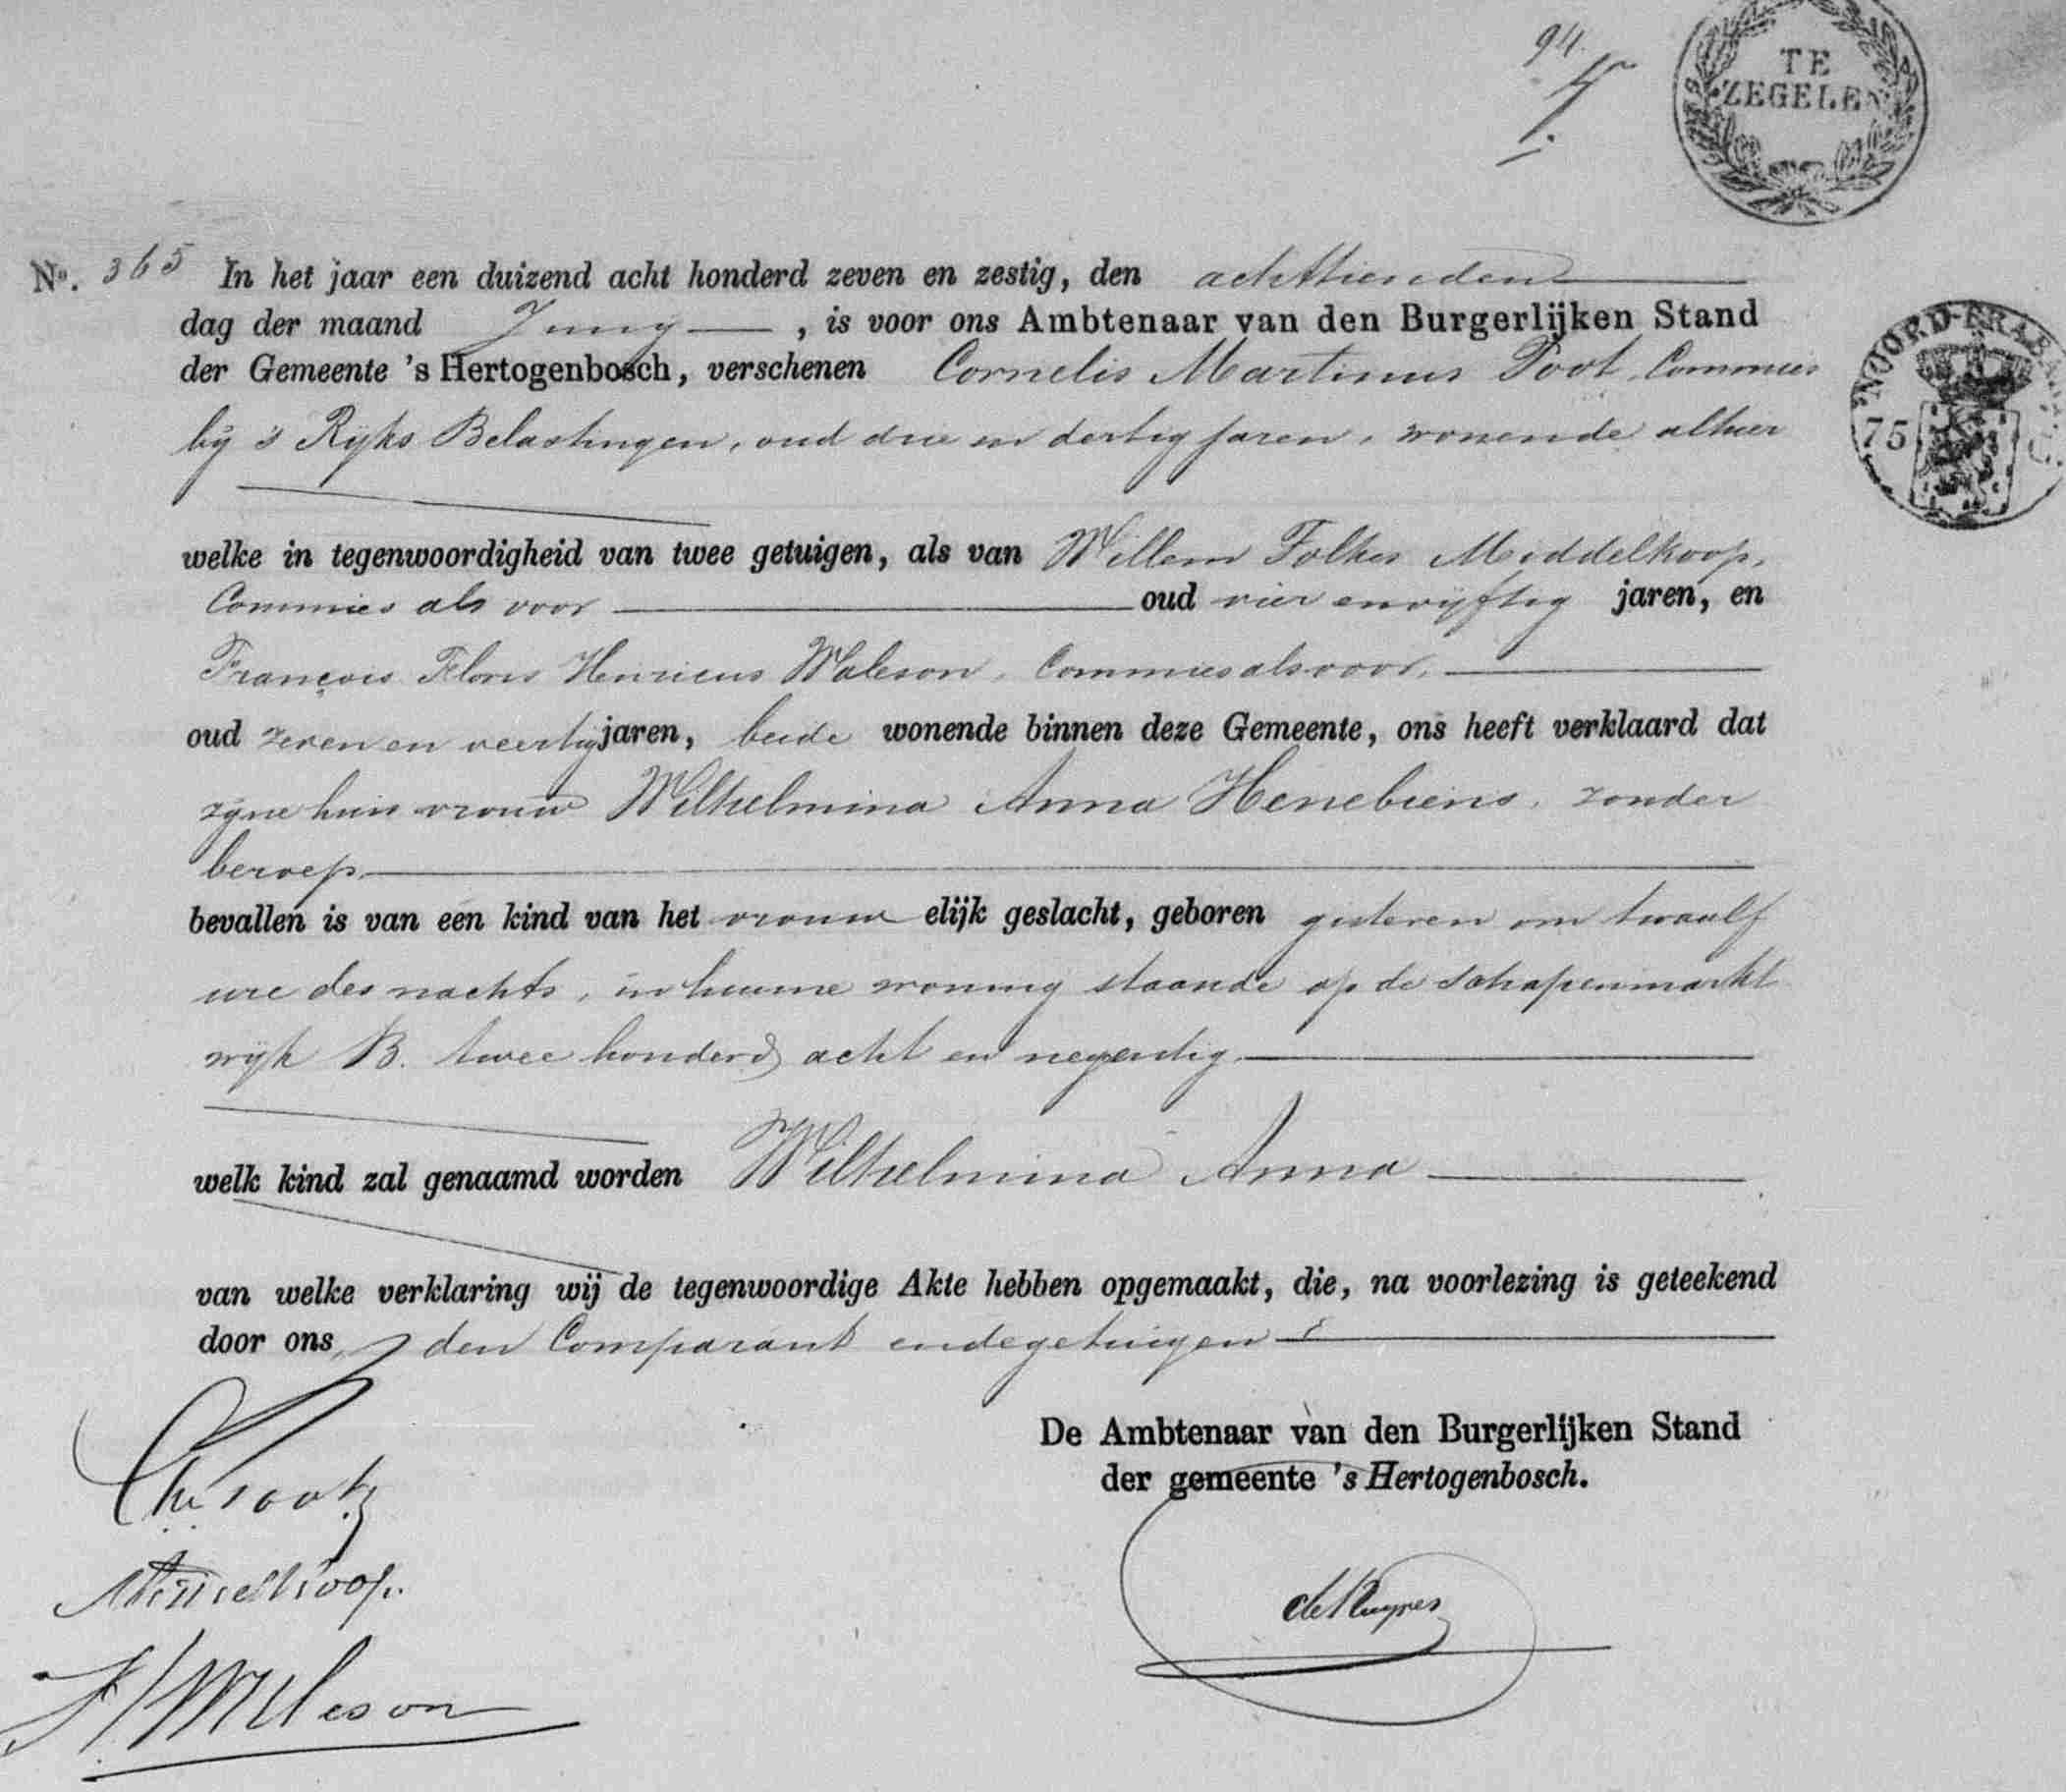 94.
TE
ZEGELEN
No. 365 In het jaar een duizend acht honderd zeven en zestig, den achttienden
dag der maand Juny, is voor ons Ambtenaar van den Burgerlijken Stand
NOORD-BRABANT
75 C.
der Gemeente 's Hertogenbosch, verschenen Cornelis Martinus Poot, Commies
by 's Ryks Belastingen, oud drie en dertig jaren, wonende alhier
welke in tegenwoordigheid van twee getuigen, als van Willem Folkes Middelkoop,
Commies als voor oud vier en vyftig jaren, en
François Floris Henricus Waleson, Commies als voor,
oud zeven en veertig jaren, beide wonende binnen deze Gemeente, ons heeft verklaard dat
zyne huis vrouw Wilhelmina Anna Henebiens, zonder
beroep
bevallen is van een kind van het vrouw elijk geslacht, geboren gisteren om twaalf
ure des nachts, in hunne woning staande op de Schapenmarkt
wyk B. twee honderd acht en negentig
welk kind zal genaamd worden Wilhelmina Anna
van welke verklaring wij de tegenwoordige Akte hebben opgemaakt, die, na voorlezing is geteekend
door ons, den Comparant en de getuigen
De Ambtenaar van den Burgerlijken Stand
der gemeente 's Hertogenbosch.
Poot
Middelkoop.
Waleson